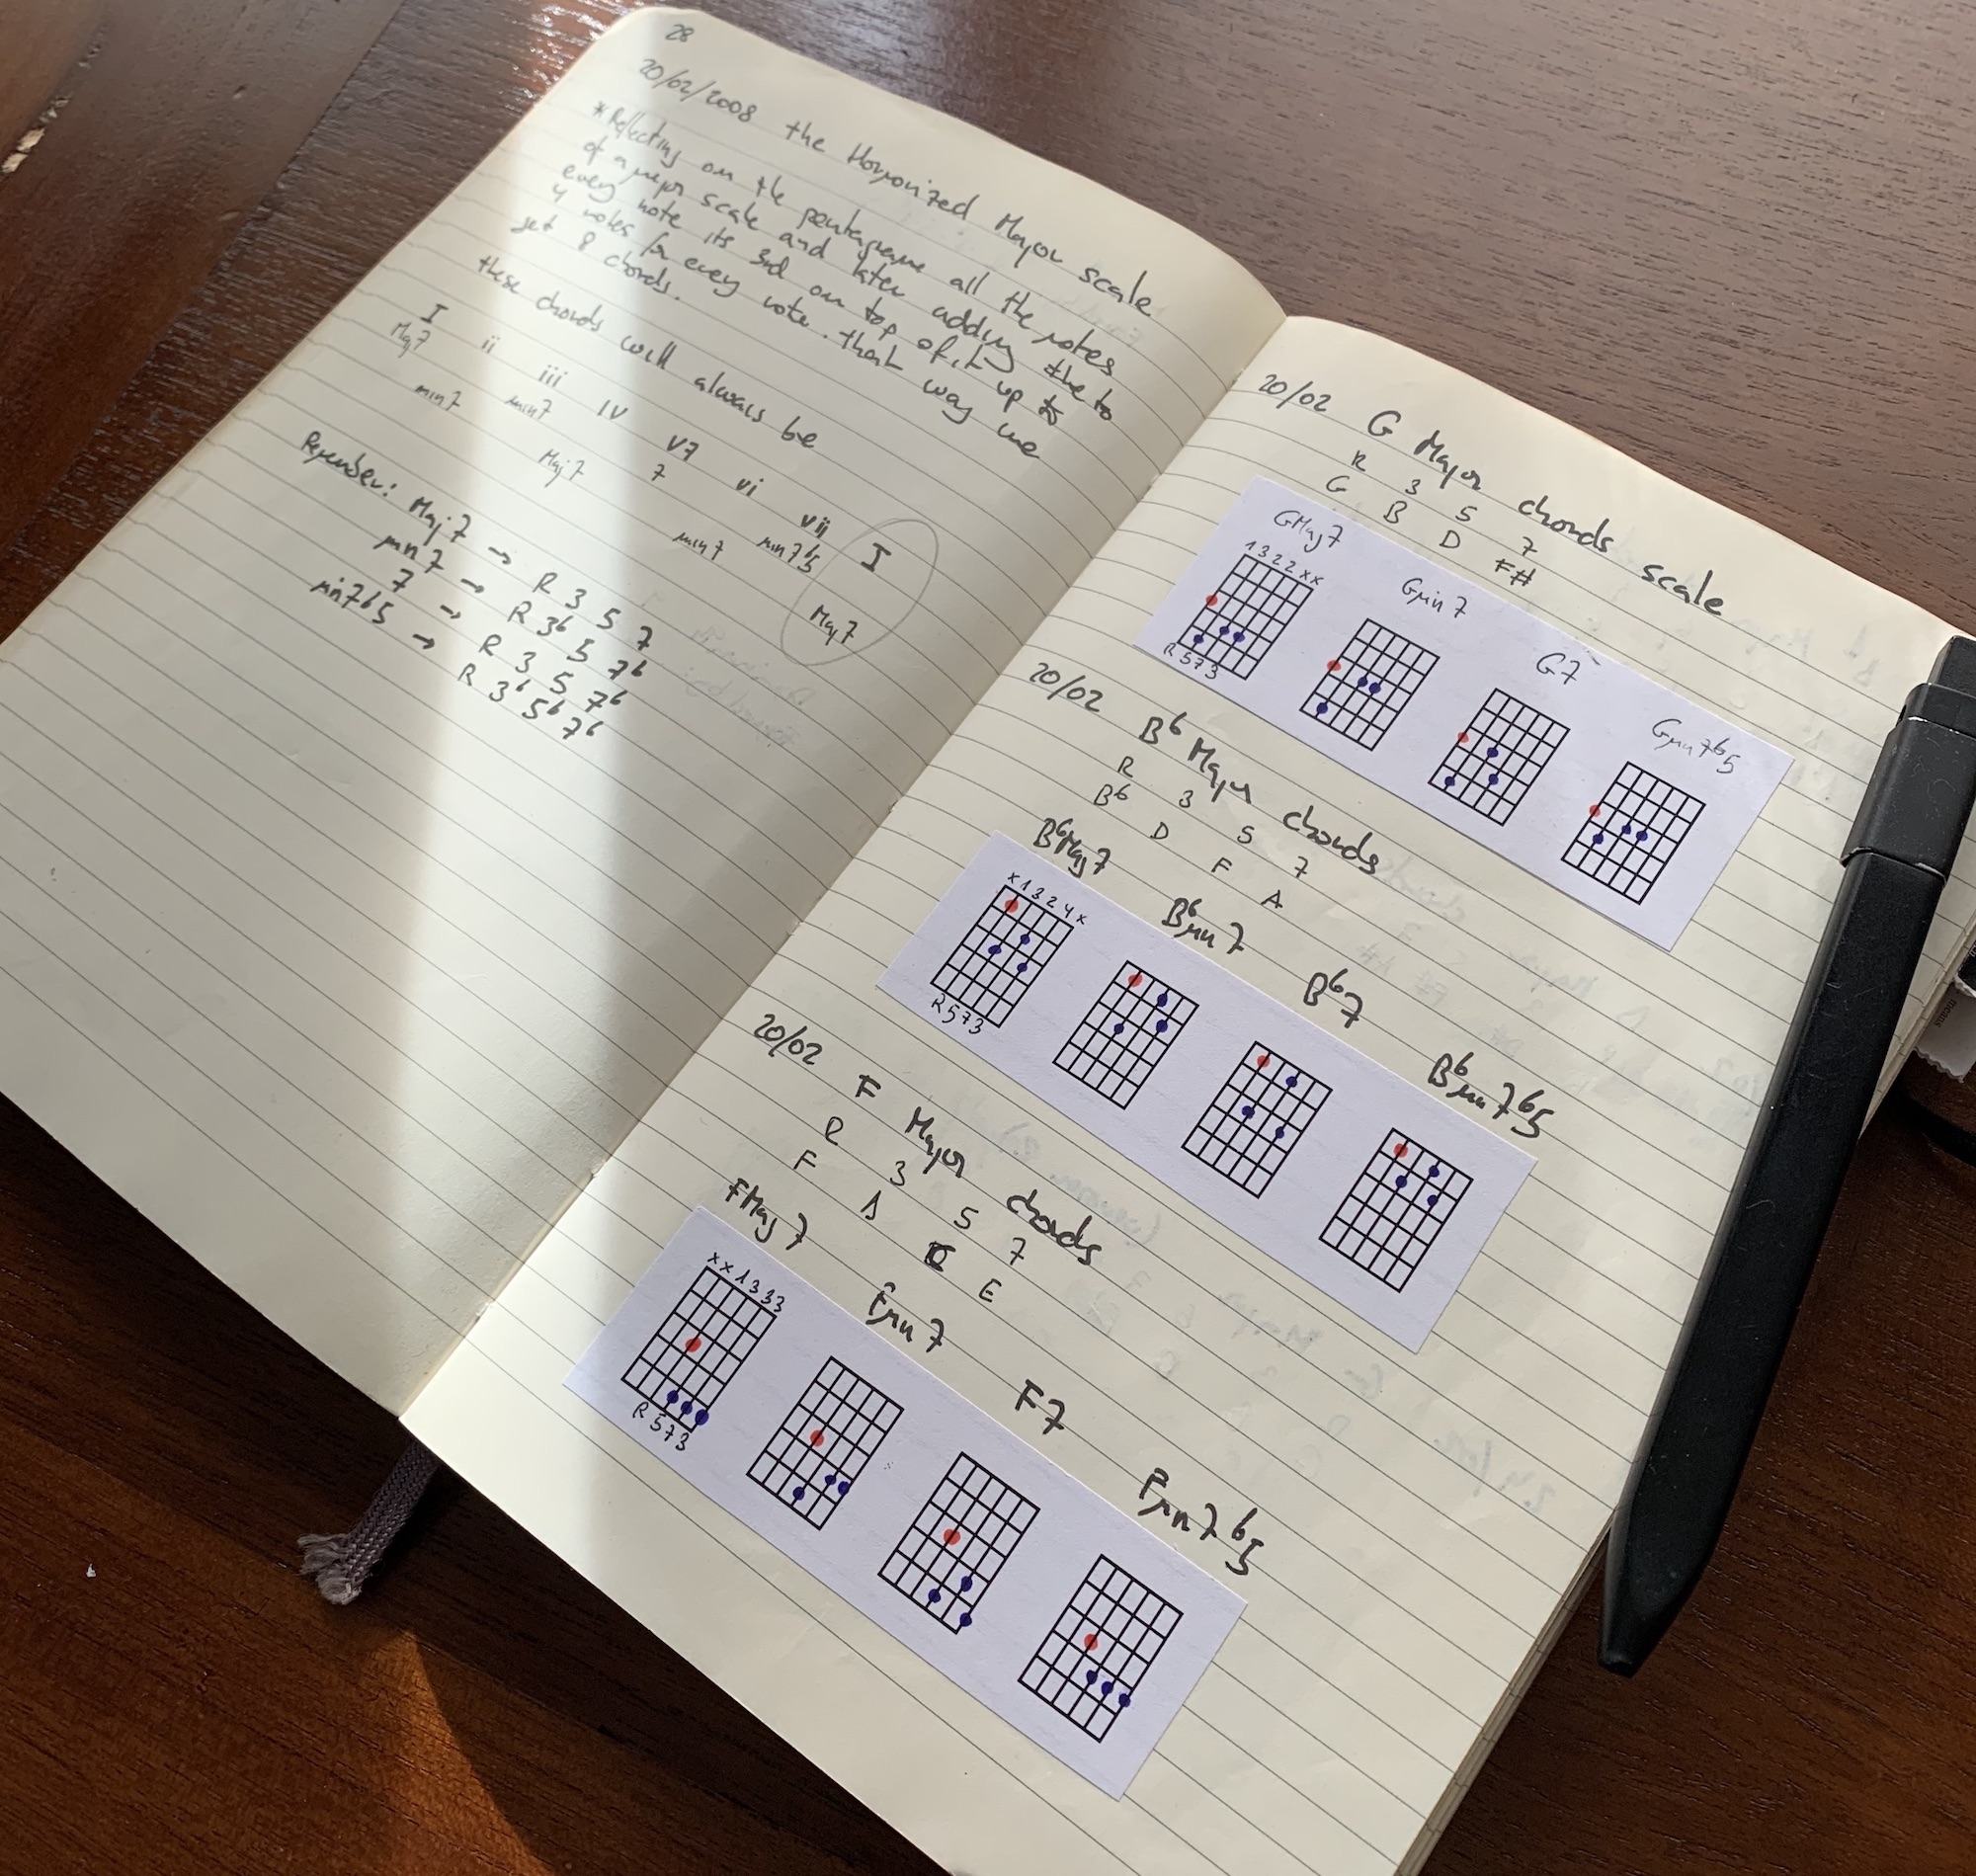 28
20/02/2008 the Harmonized Major scale
* Reflecting on the pentagrame all the notes
of a major scale and later adding the to
every note its 3rd on top of it up to
4 notes for every note. that way we
get 8 chords.
these chords will always be
I ii iii IV V7 vi vii I
Maj7 min7 min7 Maj7 7 min7 min7b5 Maj7
Remember: Maj7 → R 3 5 7
min7 → R 3b 5 7b
7 → R 3 5 7b
min7b5 → R 3b 5b 7b
20/02 G Major chords scale
R 3 5 7
G B D F#
GMaj7 Gmin7 G7 Gmin7b5
1 3 2 2 x x
R 5 7 3
20/02 Bb Major chords
R 3 5 7
Bb D F A
BbMaj7 Bbmin7 Bb7 Bbmin7b5
x 1 3 2 4 x
R 5 7 3
20/02 F Major chords
R 3 5 7
F A C E
FMaj7 Fmin7 F7 Fmin7b5
x x 1 3 3 3
R 5 7 3